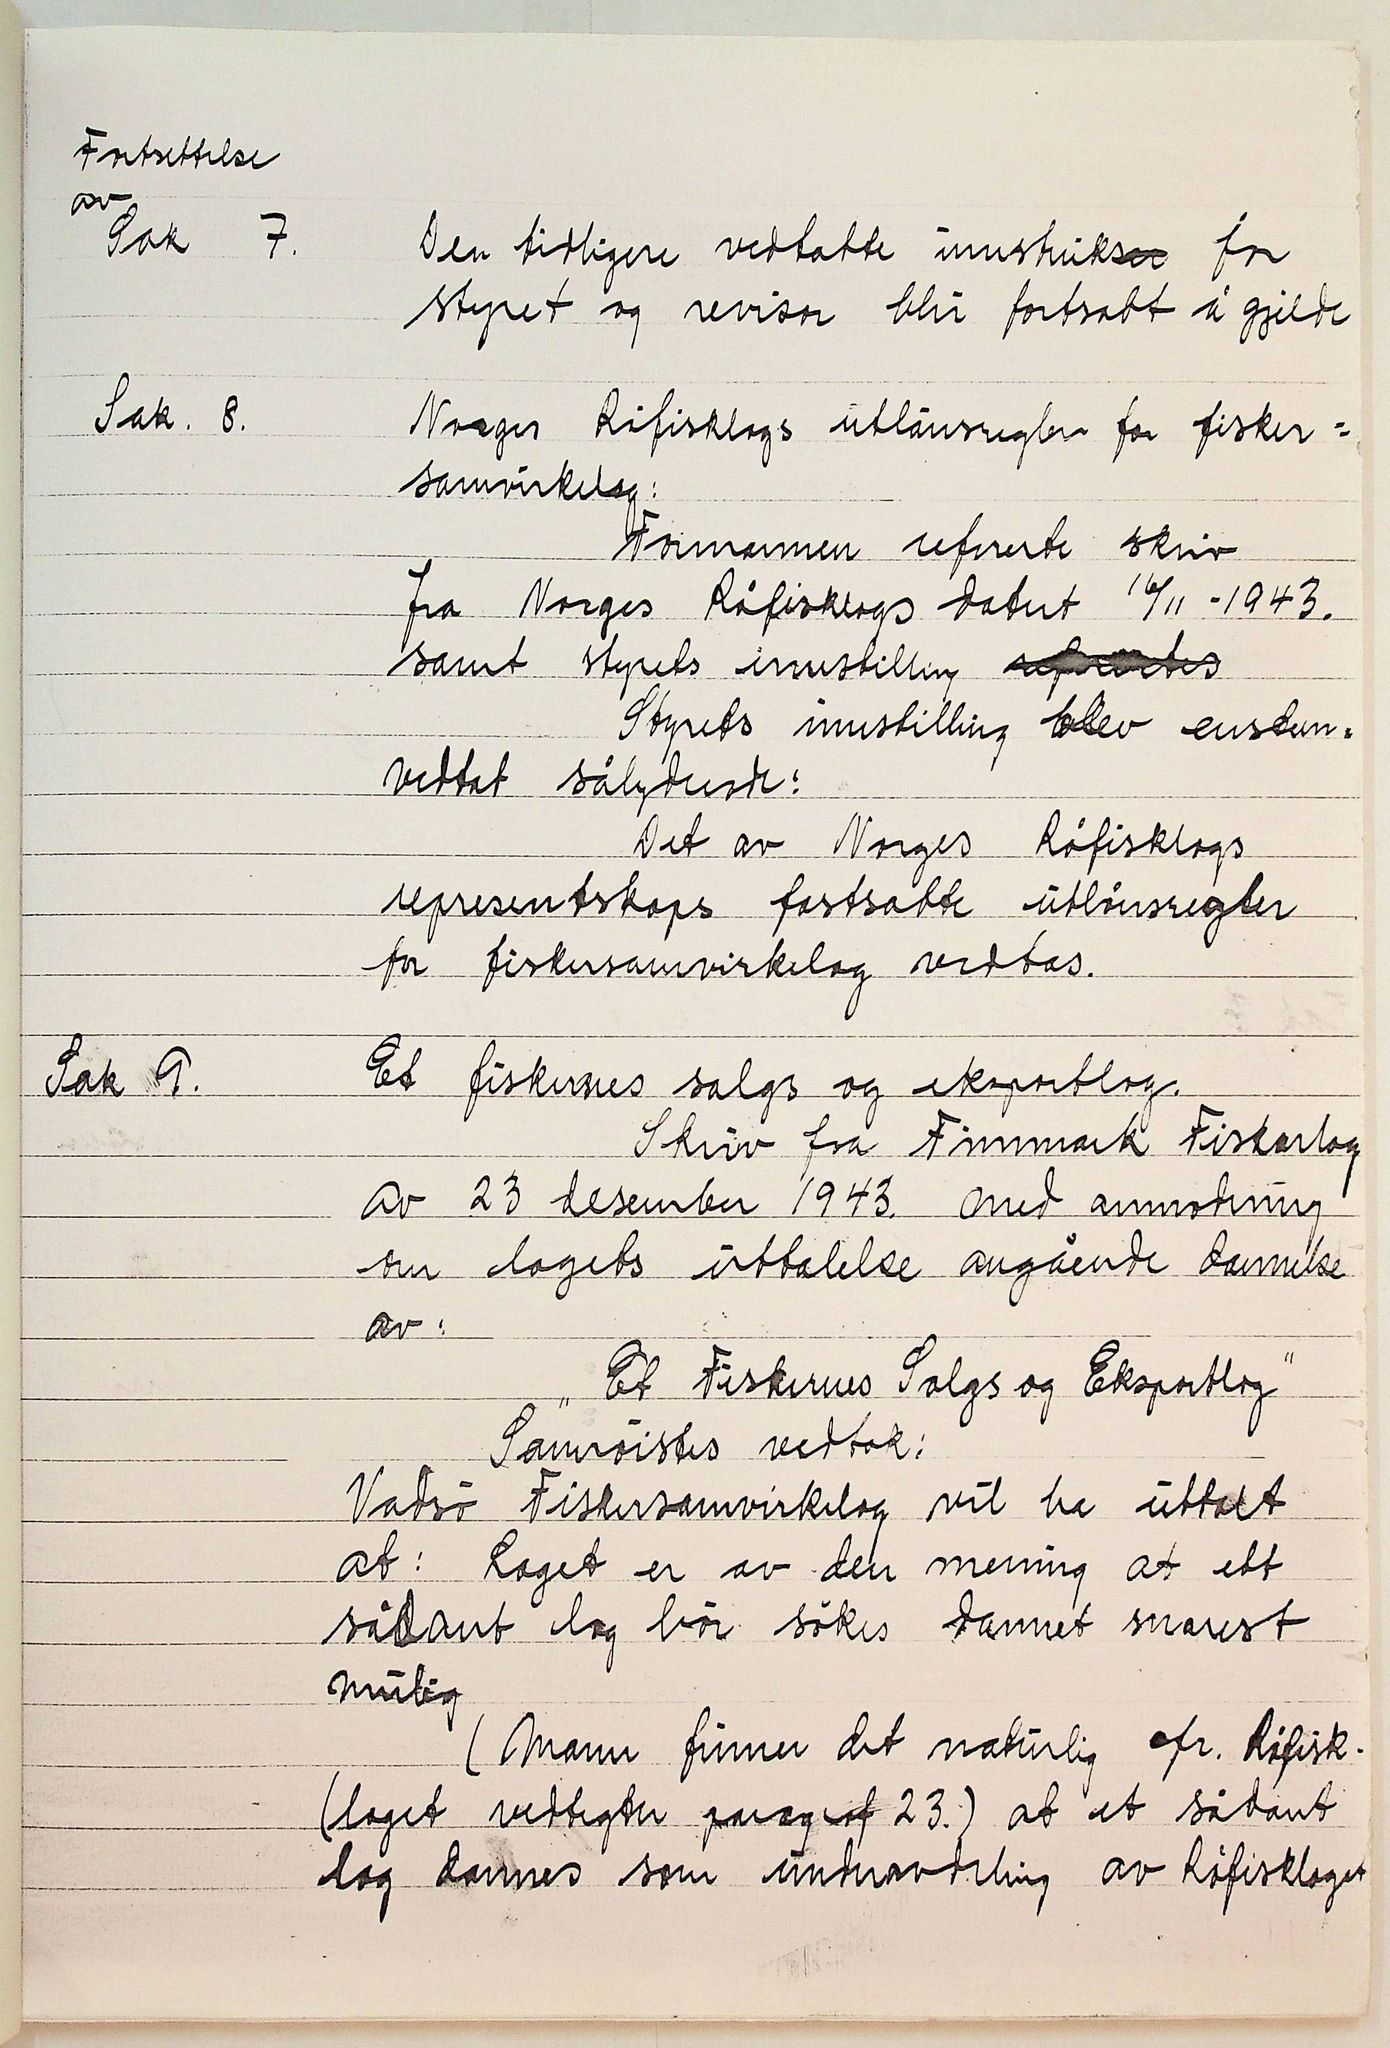 Fortsettelse
av
Sak 7. Den tidligere vedtatte innstrikser for
styret og revisor blir fortsatt å gjelde
Sak. 8. Norges Råfisklags utlånsregler for fisker=
samvirkelag:
Formannen refererte skriv
fra Norges Råfisklags datert 16/11-1943.
samt styrets innstilling refertes
Styrets innstilling blev enstem.
vedtat sålydende:
Det av Norges Råfisklags
representskaps fastsatte utlånsregler
for fiskersamvirkelag vedtas.
Sak 9. Et fiskernes salgs og eksportlag.
Skriv fra Finnmark Fiskarlag
av 23 desember 1943. med anmodning
om lagets uttalelse angående dannelse
av:
„Et Fiskernes Salgs og Eksportlag"
Samröistes vedtok:
Vadsö Fiskersamvirkelag vil ha uttalt
at: Laget er av den mening at ett
sådant lag bör sökes dannet snarest
mulig
(Mann finner det naturlig cfr. Råfisk-
(laget vedtegter paragraf 23.) at et sådant
lag dannes som underavdeling av Råfisklaget